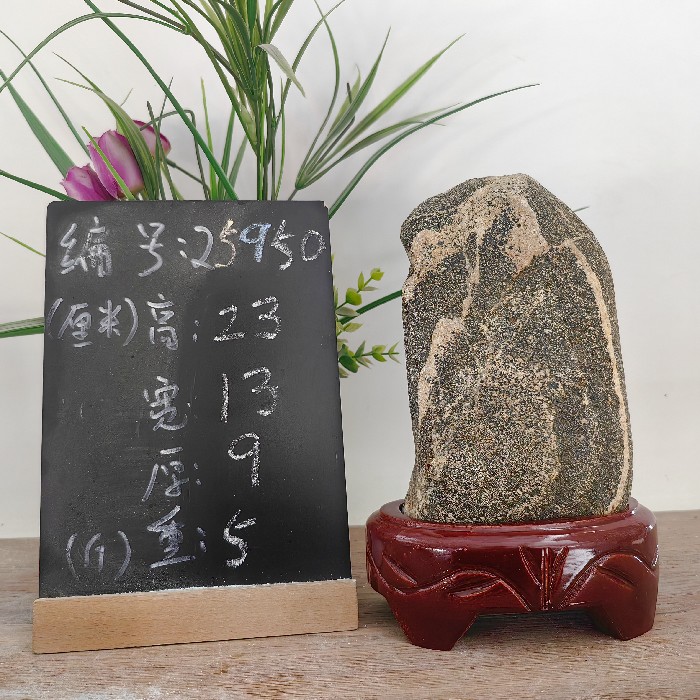 编号:25950
(厘米)高:23
宽 13
厚:9
(斤)重:5